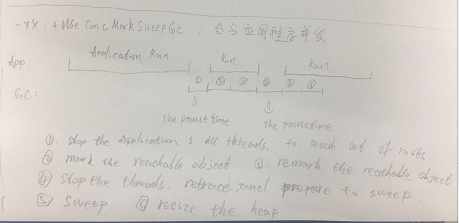 -XX:+Use Conc Mark Sweep GC : 会与应用程序并发
Application Run Run Run
App:
GC:
the pause time the pause time
① stop the Application's all threads, to reach set of roots
② mark the reachable object ③ remark the reachable object
④ stop the threads, retrace and prepare to sweep.
⑤ sweep ⑥ resize the heap